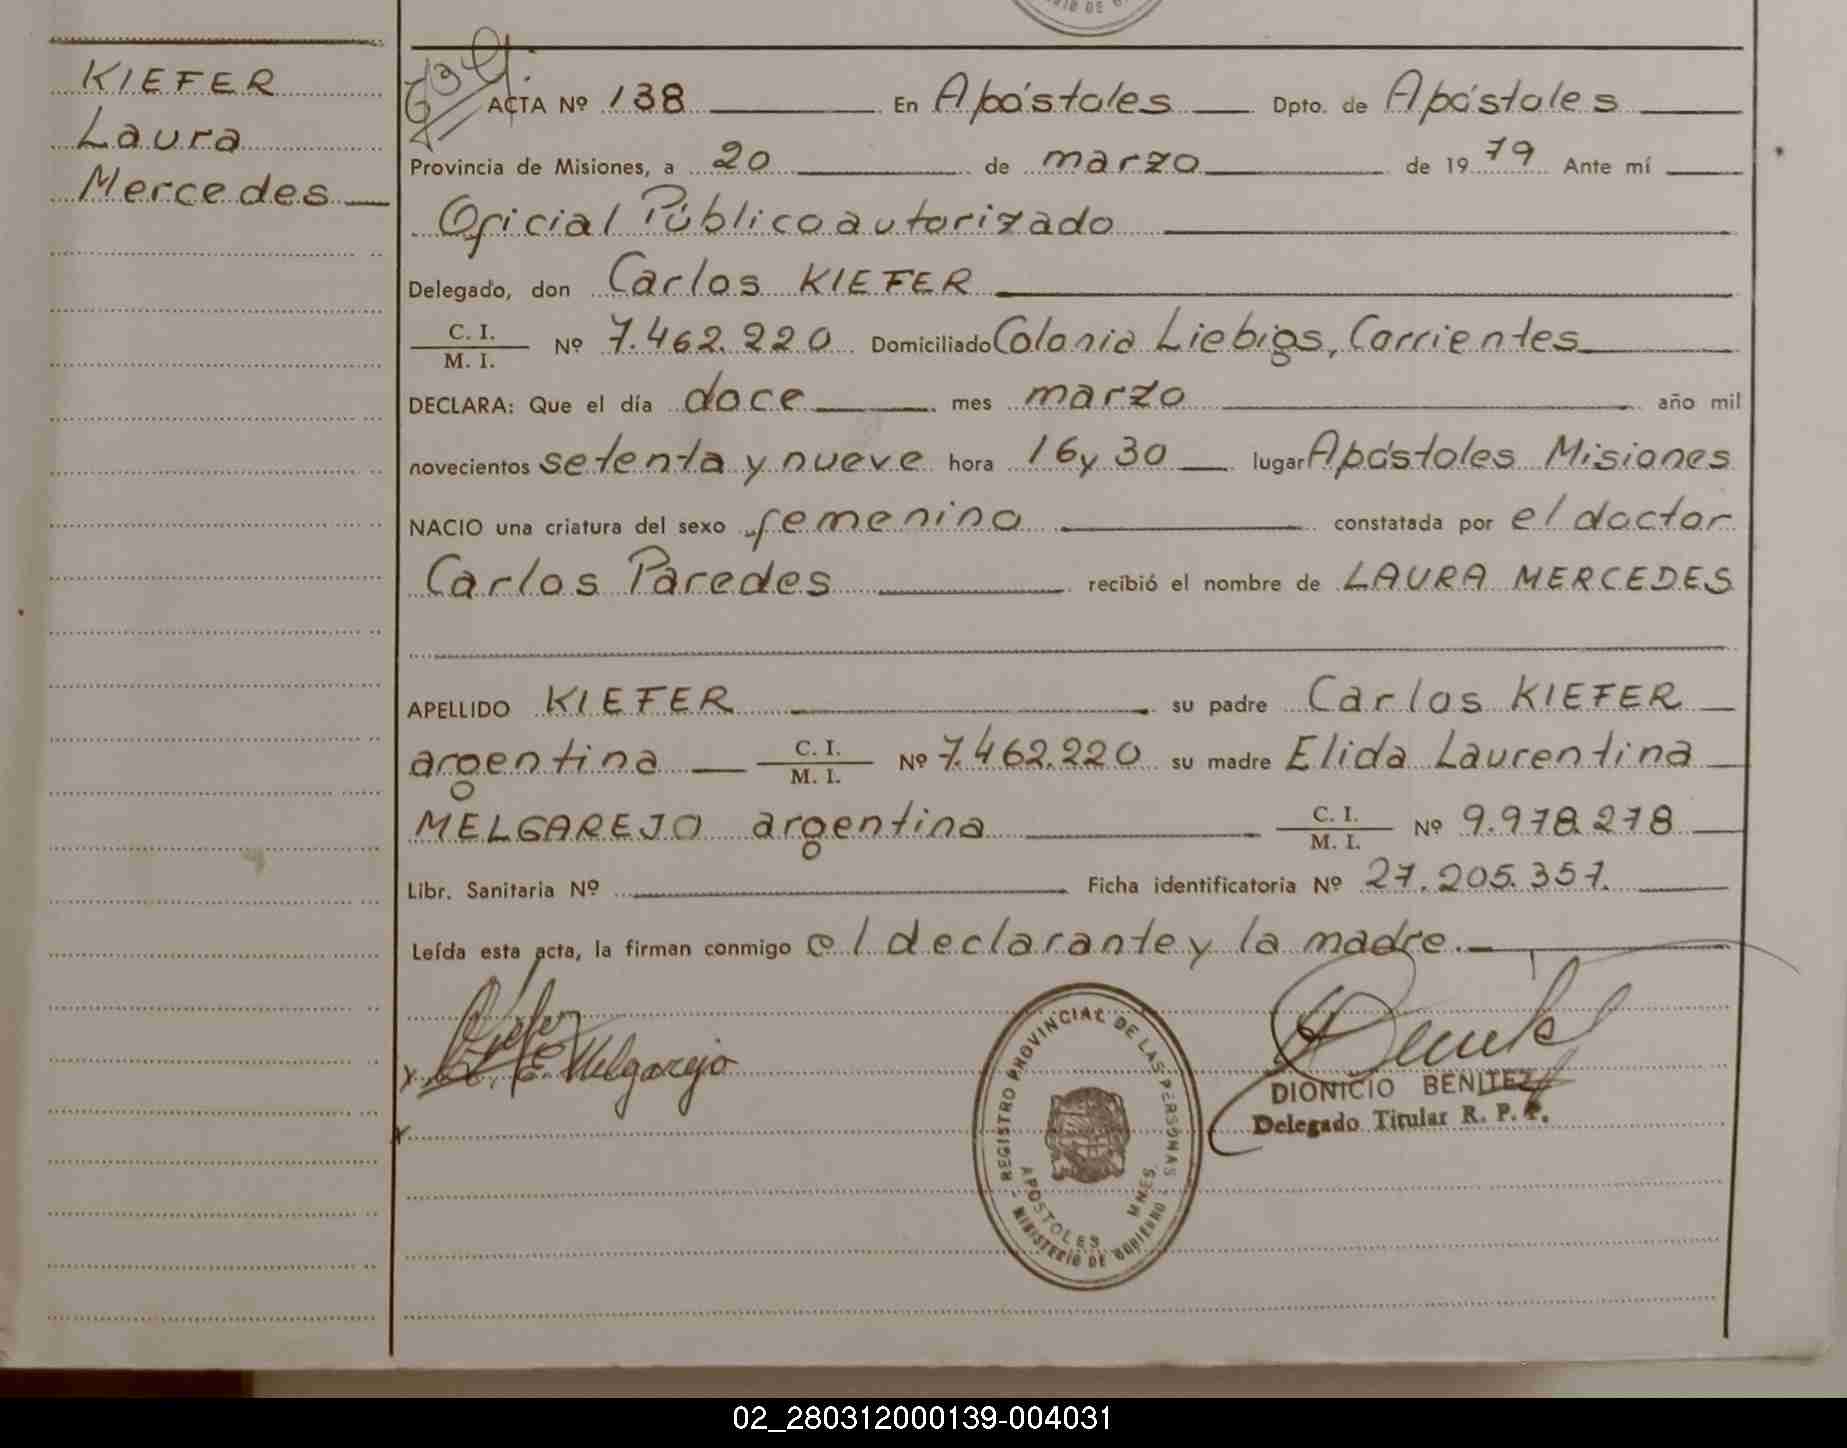 KIEFER
Laura
Mercedes
ACTA Nº 138 En Apóstoles Dpto. de Apóstoles
Provincia de Misiones, a 20 de marzo de 1979 Ante mí
Oficial Público autorizado
Delegado, don Carlos KIEFER
C. I.
M. I.
Nº 7.462.220 Domiciliado Colonia Liebigs, Corrientes
DECLARA: Que el día doce mes marzo año mil
novecientos setenta y nueve hora 16 y 30 lugar Apóstoles Misiones
NACIO una criatura del sexo femenino constatada por el doctor
Carlos Paredes recibió el nombre de LAURA MERCEDES
APELLIDO KIEFER su padre Carlos KIEFER
argentina C. I. M. I. Nº 7.462.220 su madre Elida Laurentina
MELGAREJO argentina C. I. M. I. Nº 9.978.278
Libr. Sanitaria Nº Ficha identificatoria Nº 27.205.357.
Leída esta acta, la firman conmigo el declarante y la madre.
Kiefer
E. Melgarejo
REGISTRO PROVINCIAL DE LAS PERSONAS
APOSTOLES MNES.
MINISTERIO DE GOBIERNO
DIONICIO BENITEZ
Delegado Titular R. P. P.
02_280312000139-004031